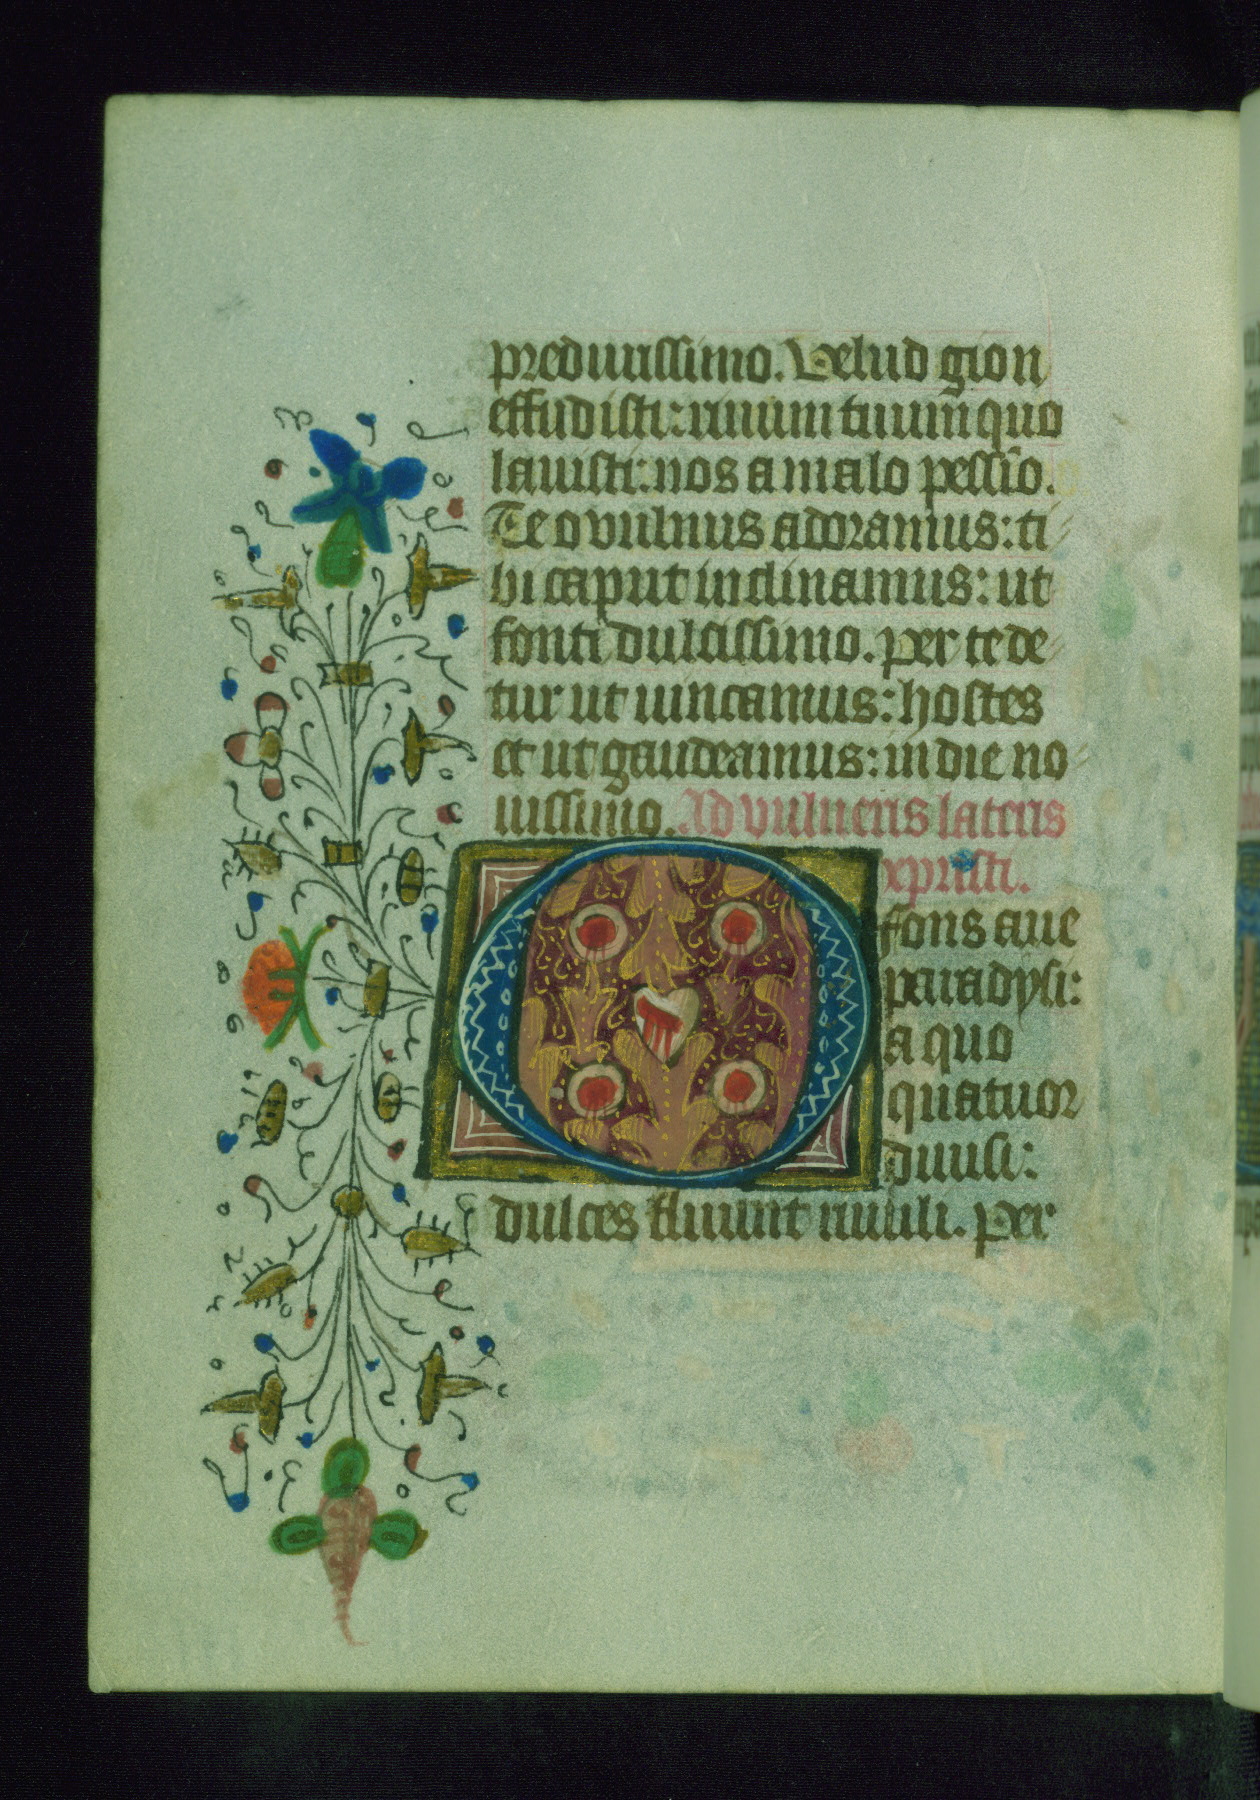 predivissimo. Velud gion
effudisti: rivum tuum quo
lavisti: nos a malo pessīo.
Te o vulnus adoramus: ti
bi caput inclinamus: ut
fonti dulcissimo. per te de
tur ut vincamus: hostes
et ut gaudeamus: in die no
vissimo. Ad vulneris lateris
xpristi.
O fons ave
paradysi:
a quo
quatuor
divisi:
dulces fluunt rivuli. per